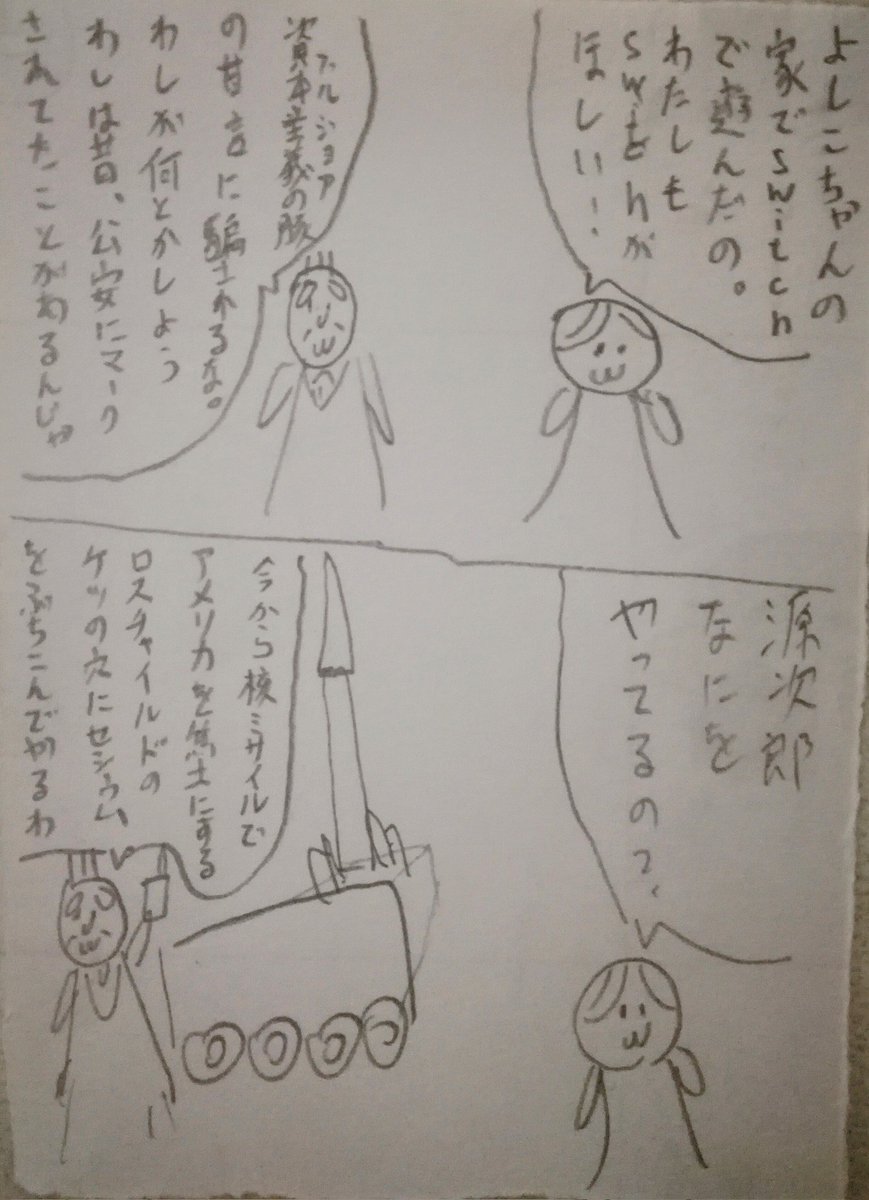 よしこちゃんの
家でswitch
で遊んだの。
わたしも
switchが
ほしい!
ブルジョア
資本主義の豚
の甘言に騙されるな。
わしが何とかしよう
わしは昔、公安にマーク
されてたことがあるんじゃ
源次郎
なにを
やってるの?
今から核ミサイルで
アメリカを焦土にする
ロスチャイルドの
ケツの穴にセシウム
をぶちこんでやるわ